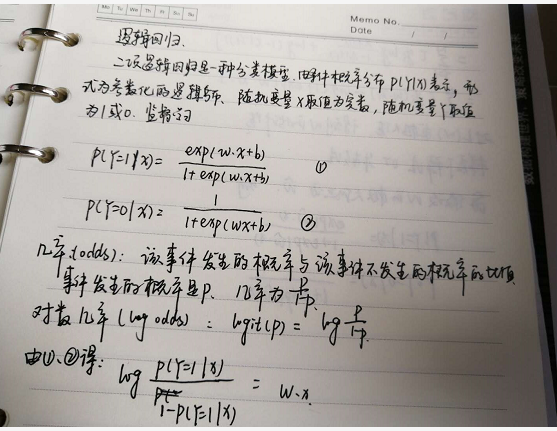 Mo Tu We Th Fr Sa Su
Memo No.
Date / /
逻辑回归.
二项逻辑回归是一种分类模型,由条件概率分布 P(Y|X)表示,形
式为参数化的逻辑分布. 随机变量X取值为实数, 随机变量Y取值
为1或0. 监督学习
P(Y=1|x)= exp(w·x+b) / 1+exp(w·x+b) ①
P(Y=0|x)= 1 / 1+exp(wx+b) ②
几率(odds): 该事件发生的概率与该事件不发生的概率的比值
事件发生的概率是p. 几率为 p/1-p.
对数几率(log odds): logit(p)= log p/1-p.
由①、②得:
log P(Y=1|x) / 1-P(Y=1|x) = w·x.